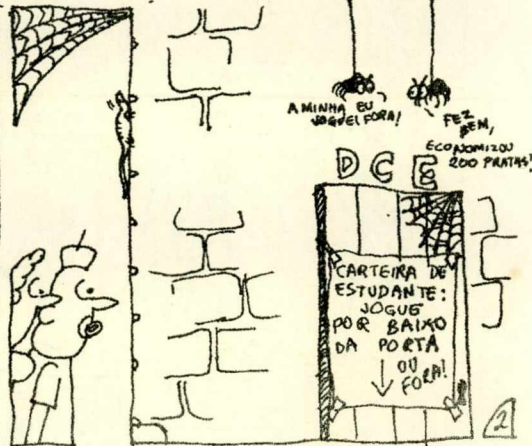 A MINHA EU
JOGUEI FORA!
FEZ
BEM,
ECONOMIZOU
200 PRATAS!
DCE
CARTEIRA DE
ESTUDANTE:
JOGUE
POR BAIXO
DA PORTA
OU
FORA!
2